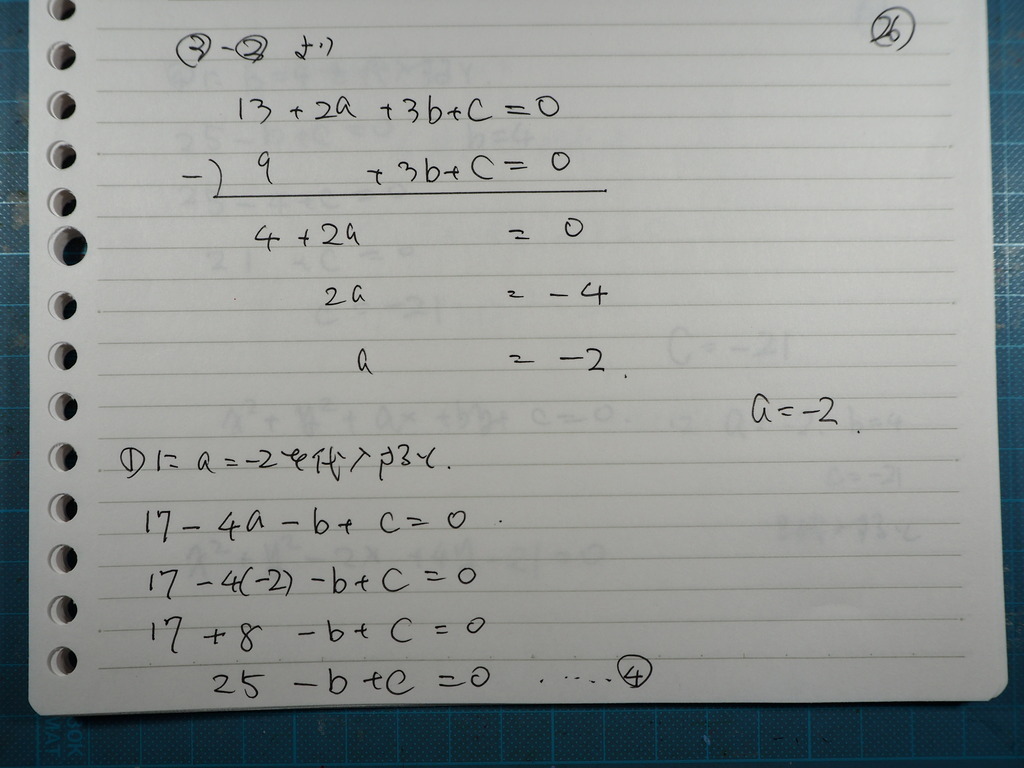 ③-② より
㉖
13 + 2a + 3b + c = 0
-) 9 + 3b + c = 0
4 + 2a = 0
2a = -4
a = -2.
a = -2.
①に a = -2を代入すると.
17 - 4a - b + c = 0.
17 - 4(-2) - b + c = 0
17 + 8 - b + c = 0
25 - b + c = 0 ..... ④